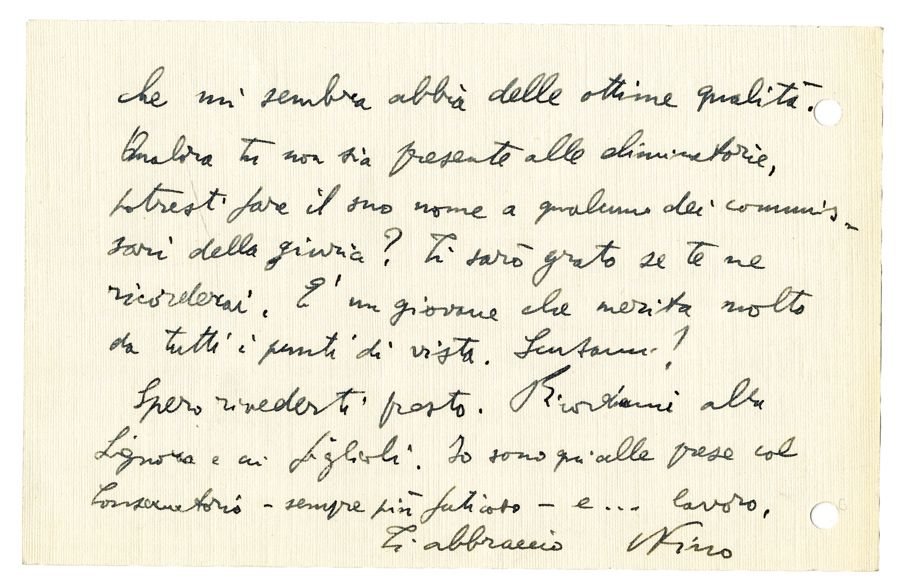 che mi sembra abbia delle ottime qualità.
Qualora tu non sia presente alle eliminatorie,
potresti fare il suo nome a qualcuno dei commis-
sari della giuria? Ti sarò grato se te ne
ricorderai. E' un giovane che merita molto
da tutti i punti di vista. Scusami!
Spero rivederti presto. Ricordami alla
Signora e ai figlioli. Io sono qui alle prese col
Conservatorio - sempre più faticoso - e ... lavoro,
Ti abbraccio Nino